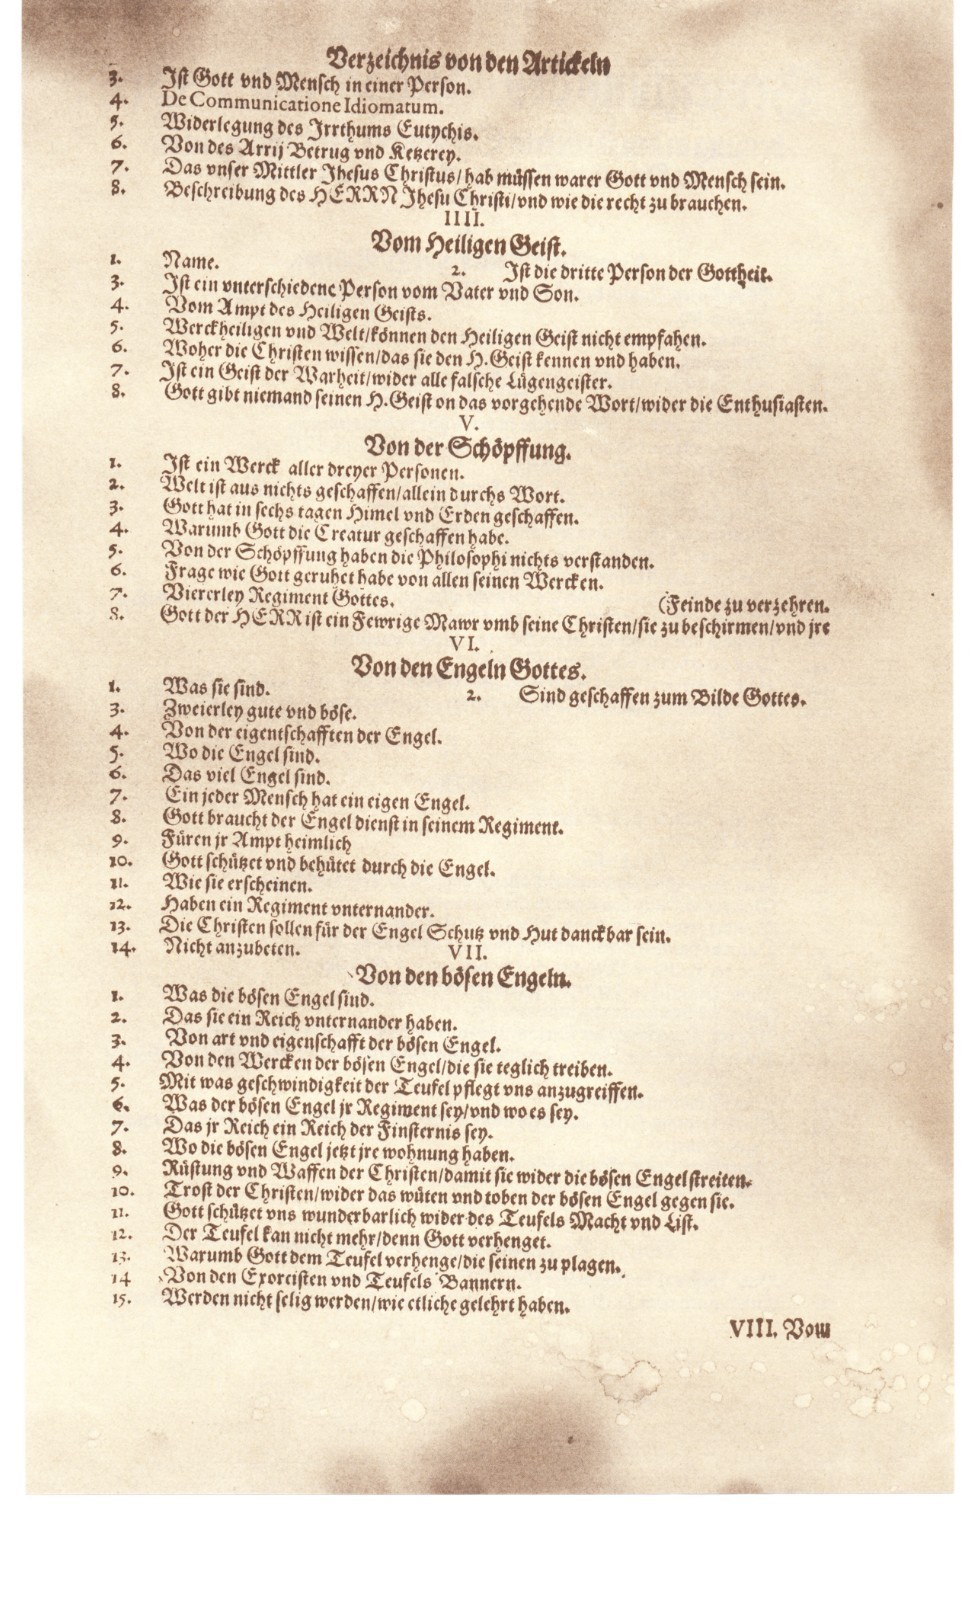 Verzeichnis von den Artickeln
3. Ist Gott vnd Mensch in einer Person.
4. De Communicatione Idiomatum.
5. Widerlegung des Irrthums Eutychis.
6. Von des Arrij Betrug vnd Ketzerey.
7. Das vnser Mittler Jhesus Christus/ hab müssen warer Gott vnd Mensch sein.
8. Beschreibung des HERRN Jhesu Christi/vnd wie die recht zu brauchen.
IIII.
Vom Heiligen Geist.
1. Name. 2. Ist die dritte Person der Gottheit.
3. Ist ein vnterschiedene Person vom Vater vnd Son.
4. Vom Ampt des Heiligen Geists.
5. Werckheiligen vnd Welt/können den Heiligen Geist nicht empfahen.
6. Woher die Christen wissen/das sie den H.Geist kennen vnd haben.
7. Ist ein Geist der Warheit/wider alle falsche Lügengeister.
8. Gott gibt niemand seinen H.Geist on das vorgehende Wort/wider die Enthusiasten.
V.
Von der Schöpffung.
1. Ist ein Werck aller dreyer Personen.
2. Welt ist aus nichts geschaffen/allein durchs Wort.
3. Gott hat in sechs tagen Himel vnd Erden geschaffen.
4. Warumb Gott die Creatur geschaffen habe.
5. Von der Schöpffung haben die Philosophi nichts verstanden.
6. Frage wie Gott geruhet habe von allen seinen Wercken.
7. Viererley Regiment Gottes. (Feinde zu verzehren.
8. Gott der HERR ist ein Fewrige Mawr vmb seine Christen/sie zu beschirmen/vnd jre
VI.
Von den Engeln Gottes.
1. Was sie sind. 2. Sind geschaffen zum Bilde Gottes.
3. Zweierley gute vnd böse.
4. Von der eigentschafften der Engel.
5. Wo die Engel sind.
6. Das viel Engel sind.
7. Ein jeder Mensch hat ein eigen Engel.
8. Gott braucht der Engel dienst in seinem Regiment.
9. Füren jr Ampt heimlich
10. Gott schützet vnd behütet durch die Engel.
11. Wie sie erscheinen.
12. Haben ein Regiment vnternander.
13. Die Christen sollen für der Engel Schutz vnd Hut danckbar sein.
14. Nicht anzubeten.
VII.
Von den bösen Engeln.
1. Was die bösen Engel sind.
2. Das sie ein Reich vnternander haben.
3. Von art vnd eigenschafft der bösen Engel.
4. Von den Wercken der bösen Engel/die sie teglich treiben.
5. Mit was geschwindigkeit der Teufel pflegt vns anzugreiffen.
6. Was der bösen Engel jr Regiment sey/vnd wo es sey.
7. Das jr Reich ein Reich der Finsternis sey.
8. Wo die bösen Engel jetzt jre wohnung haben.
9. Rüstung vnd Waffen der Christen/damit sie wider die bösen Engel streiten.
10. Trost der Christen/wider das wüten vnd toben der bösen Engel gegen sie.
11. Gott schützet vns wunderbarlich wider des Teufels Macht vnd List.
12. Der Teufel kan nicht mehr/denn Gott verhenget.
13. Warumb Gott dem Teufel verhenge/die seinen zu plagen.
14 Von den Exorcisten vnd Teufels Bannern.
15. Werden nicht selig werden/wie etliche gelehrt haben.
VIII. Vom